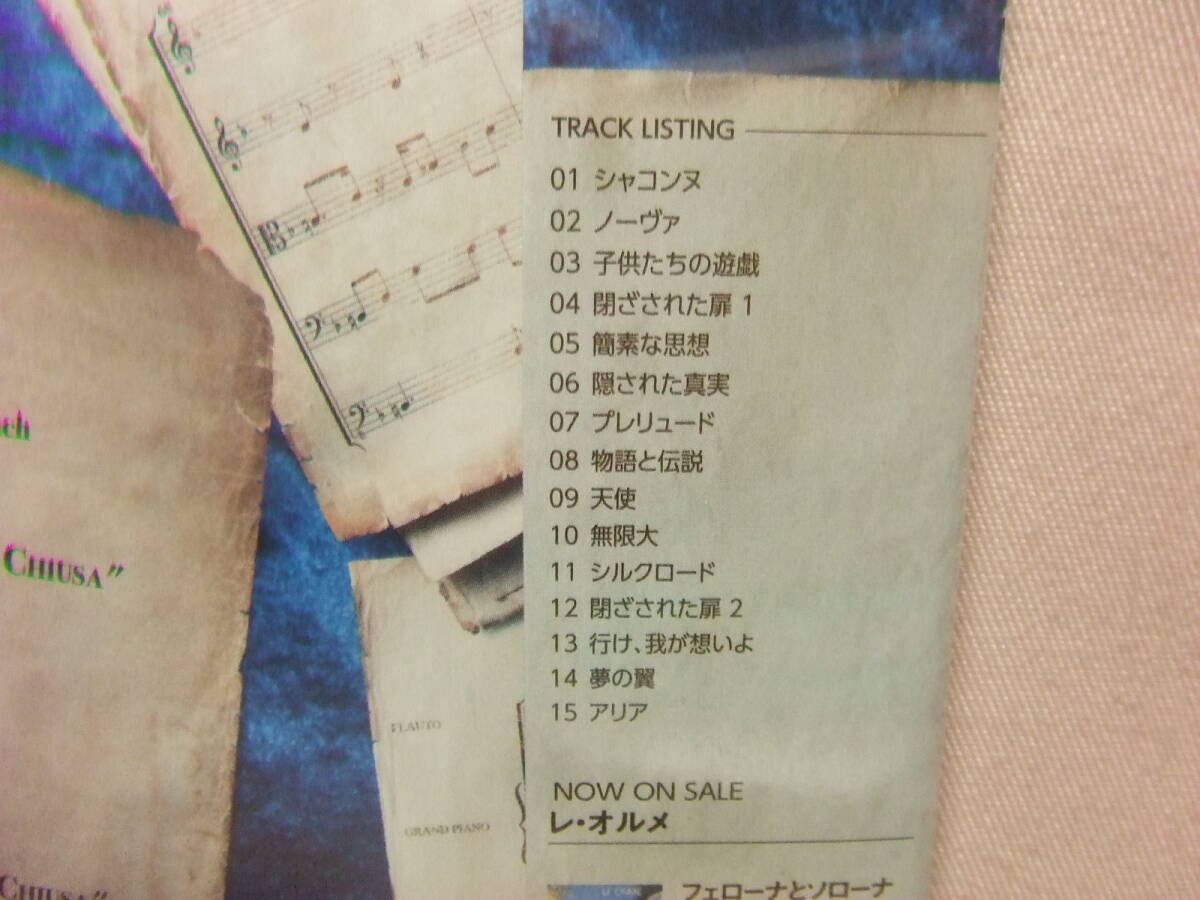 TRACK LISTING
01 シャコンヌ
02 ノーヴァ
03 子供たちの遊戯
04 閉ざされた扉 1
05 簡素な思想
06 隠された真実
07 プレリュード
08 物語と伝説
09 天使
10 無限大
11 シルクロード
12 閉ざされた扉 2
13 行け、我が想いよ
14 夢の翼
15 アリア
NOW ON SALE
レ・オルメ
フェローナとソローナ
ch
CHIUSA"
FLAUTO
GRAND PIANO
CHIUSA"